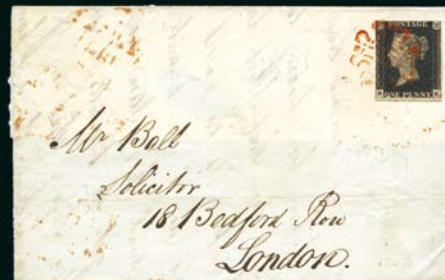 POSTAGE
ONE PENNY
Mr Ball
Solicitor
18 Bedford Row
London.